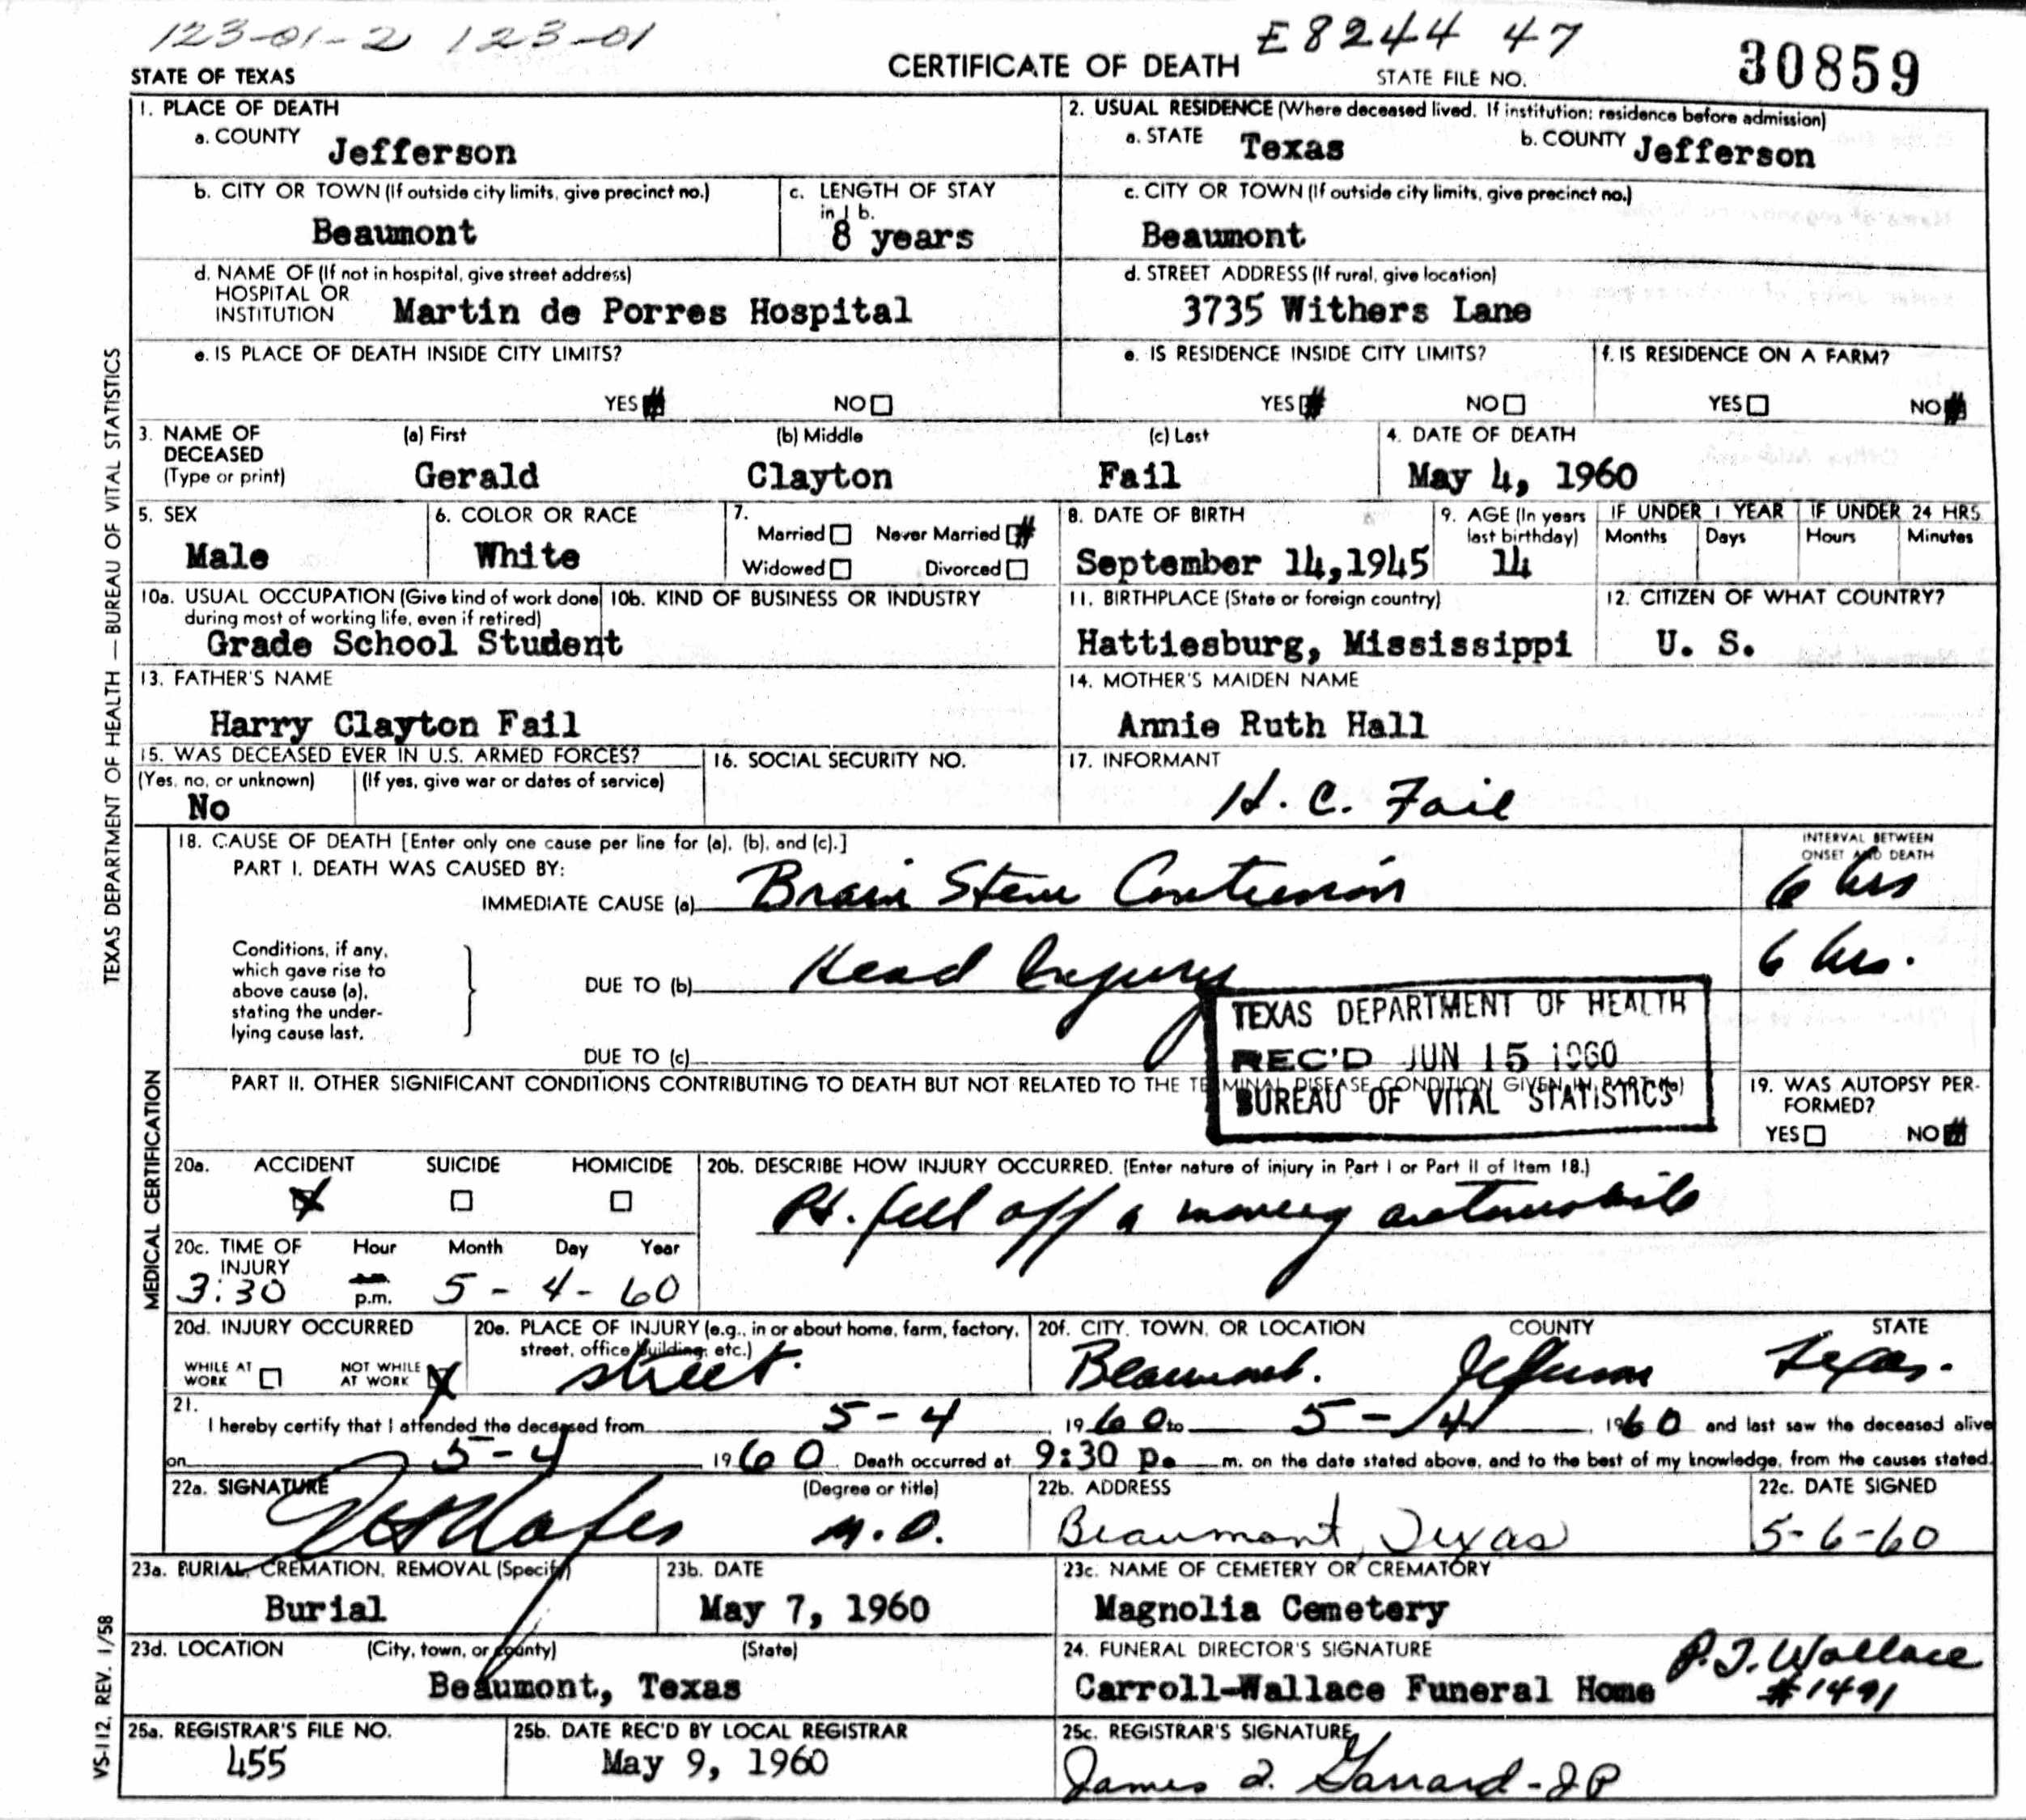 123-01-2 123-01
E8244 47
STATE OF TEXAS
CERTIFICATE OF DEATH
STATE FILE NO. 30859
1. PLACE OF DEATH
a. COUNTY Jefferson
2. USUAL RESIDENCE (Where deceased lived. If institution: residence before admission)
a. STATE Texas b. COUNTY Jefferson
b. CITY OR TOWN (If outside city limits, give precinct no.) Beaumont
c. LENGTH OF STAY in 1 b. 8 years
c. CITY OR TOWN (If outside city limits, give precinct no.) Beaumont
d. NAME OF (If not in hospital, give street address) HOSPITAL OR INSTITUTION Martin de Porres Hospital
d. STREET ADDRESS (If rural, give location) 3735 Withers Lane
e. IS PLACE OF DEATH INSIDE CITY LIMITS?
YES NO
e. IS RESIDENCE INSIDE CITY LIMITS?
YES NO
f. IS RESIDENCE ON A FARM?
YES NO
3. NAME OF DECEASED (Type or print)
(a) First Gerald
(b) Middle Clayton
(c) Last Fail
4. DATE OF DEATH May 4, 1960
5. SEX Male
6. COLOR OR RACE White
7. Married Never Married
Widowed Divorced
8. DATE OF BIRTH September 14,1945
9. AGE (In years last birthday) 14
IF UNDER 1 YEAR Months Days
IF UNDER 24 HRS Hours Minutes
10a. USUAL OCCUPATION (Give kind of work done during most of working life, even if retired) Grade School Student
10b. KIND OF BUSINESS OR INDUSTRY
11. BIRTHPLACE (State or foreign country) Hattiesburg, Mississippi
12. CITIZEN OF WHAT COUNTRY? U. S.
13. FATHER'S NAME Harry Clayton Fail
14. MOTHER'S MAIDEN NAME Annie Ruth Hall
15. WAS DECEASED EVER IN U.S. ARMED FORCES?
(Yes, no, or unknown) No
(If yes, give war or dates of service)
16. SOCIAL SECURITY NO.
17. INFORMANT H. C. Fail
18. CAUSE OF DEATH [Enter only one cause per line for (a), (b), and (c).]
INTERVAL BETWEEN ONSET AND DEATH
PART I. DEATH WAS CAUSED BY:
IMMEDIATE CAUSE (a) Brain Stem Contusion 6 hrs
Conditions, if any, which gave rise to above cause (a), stating the underlying cause last.
DUE TO (b) Head Injury 6 hrs.
DUE TO (c)
TEXAS DEPARTMENT OF HEALTH
REC'D JUN 15 1960
BUREAU OF VITAL STATISTICS
PART II. OTHER SIGNIFICANT CONDITIONS CONTRIBUTING TO DEATH BUT NOT RELATED TO THE TERMINAL DISEASE CONDITION GIVEN IN PART I(a)
19. WAS AUTOPSY PERFORMED?
YES NO
20a. ACCIDENT SUICIDE HOMICIDE
20b. DESCRIBE HOW INJURY OCCURRED. (Enter nature of injury in Part I or Part II of Item 18.)
Pt. fell off a moving automobile
20c. TIME OF INJURY Hour Month Day Year
3:30 p.m. 5 - 4 - 60
20d. INJURY OCCURRED
WHILE AT WORK NOT WHILE AT WORK
20e. PLACE OF INJURY (e.g., in or about home, farm, factory, street, office building, etc.) street.
20f. CITY, TOWN, OR LOCATION COUNTY STATE
Beaumont. Jefferson Texas.
21. I hereby certify that I attended the deceased from 5-4, 1960 to 5-4, 1960 and last saw the deceased alive
on 5-4 1960. Death occurred at 9:30 p. m. on the date stated above, and to the best of my knowledge, from the causes stated.
22a. SIGNATURE (Degree or title) M.D.
22b. ADDRESS Beaumont, Texas
22c. DATE SIGNED 5-6-60
23a. BURIAL, CREMATION, REMOVAL (Specify) Burial
23b. DATE May 7, 1960
23c. NAME OF CEMETERY OR CREMATORY Magnolia Cemetery
23d. LOCATION (City, town, or county) (State) Beaumont, Texas
24. FUNERAL DIRECTOR'S SIGNATURE P.J. Wallace
Carroll-Wallace Funeral Home #1491
25a. REGISTRAR'S FILE NO. 455
25b. DATE REC'D BY LOCAL REGISTRAR May 9, 1960
25c. REGISTRAR'S SIGNATURE James A. Garrard - JP
TEXAS DEPARTMENT OF HEALTH — BUREAU OF VITAL STATISTICS
MEDICAL CERTIFICATION
VS-112, REV. 1/58